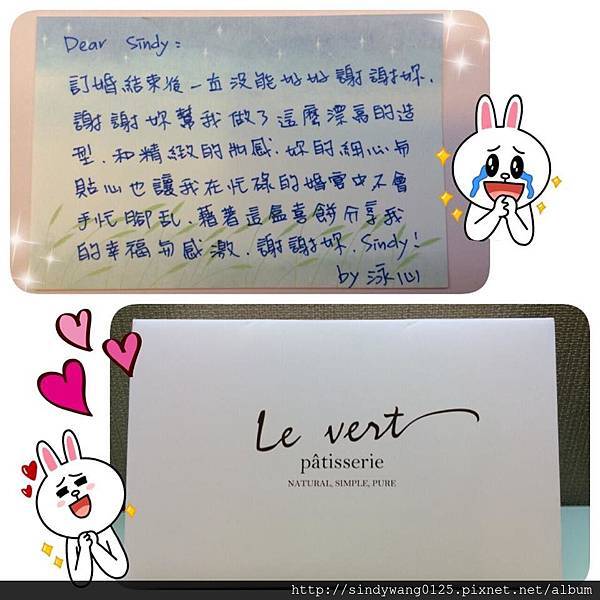 Dear Sindy:
訂婚結束後一直沒能好好謝謝妳.
謝謝妳幫我做了這麼漂亮的造
型.和精緻的妝感.妳的細心與
貼心也讓我在忙碌的婚宴中不會
手忙腳乱.藉著這盒喜餅分享我
的幸福与感激.謝謝妳.Sindy!
by 泳心
Le vert
pâtisserie
NATURAL, SIMPLE, PURE
http://sindywang0125.pixnet.net/album